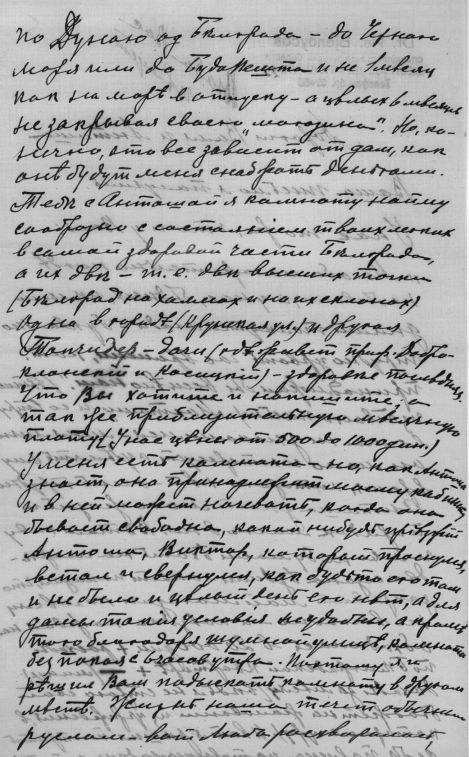 по Дунаю од Бѣлграда – до Чернаго
моря или до Будапешта и не 1 мѣсяц
как на морѣ в отпуску – а цѣлых 6 мѣсяцев
не закрывая своего „магазина“. Но, ко-
нечно, это все зависит от дам, как
онѣ будут меня снабжать деньгами.
Тебѣ с Антошей я комнату найму
сообразно с состоянием твоих легких
в самой здоровой части Бѣлграда,
а их двѣ – т.е. двѣ высших точки
(Бѣлград на холмах и на их склонах)
Одна в городѣ (Крунская ул.) и другая
Топчидер – дачи (гдѣ живет проф. Добро-
клонский и Косицкий) – здоровѣе
Что Вы хотите и напишите;
так же приблизительную мѣсячную
плату (У нас цѣны от 500 до 1000 дин.)
У меня есть комната – но, как Антоша
знает, она принадлежит моему кабинету
и в ней может ночевать, когда она
бывает свободна, какой нибудь
Антоша, Виктор, который проснулся,
встал и свернулся, как будто его там
и не было и цѣлый день его нѣт, а для
дамы такия условия неудобны, а кромѣ
того благодаря шумной улицѣ, комната
без покоя с 6 часов утра. Поэтому я и
рѣшил Вам подыскать комнату в другом
мѣстѣ. Жизнь наша течет обычным
руслом. вот Люба расхворалась,